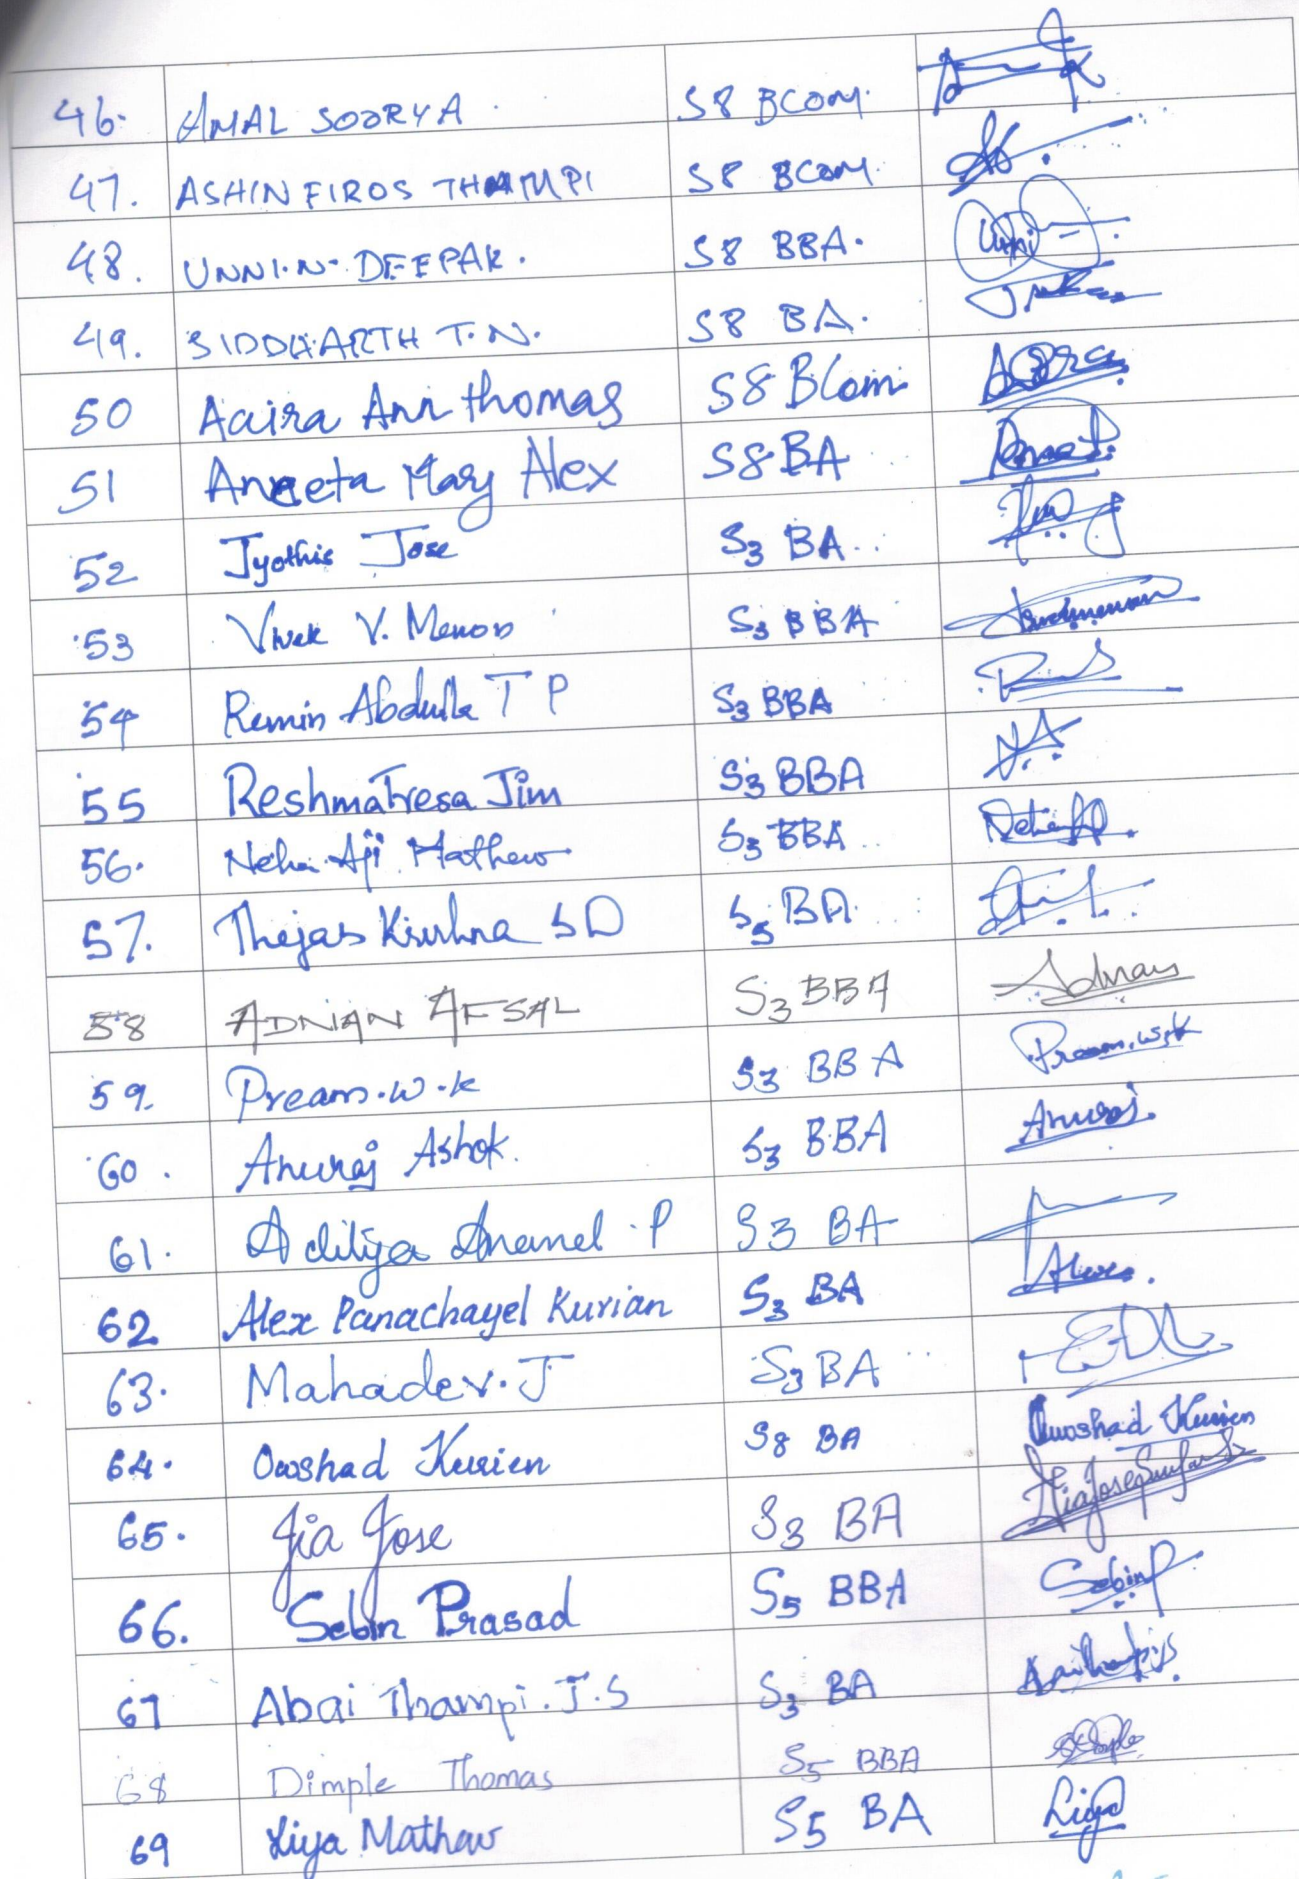 46. AMAL SOORYA. S8 BCOM.
47. ASHIN FIROS THAMPI S8 BCOM.
48. UNNI.N. DEEPAK. S8 BBA. Unni
49. SIDDHARTH T.N. S8 BA.
50 Aaira Ann thomas S8 BCom
51 Aneeta Mary Alex S8 BA
52 Jyothis Jose S3 BA
53 Vivek V. Menon S3 BBA
54 Remin Abdulla T P S3 BBA
55 Reshma Tresa Jim S3 BBA
56. Neha Aji Mathew S3 BBA
57. Thejas Krishna S D S5 BA
58 ADNAN AFSAL S3 BBA Adnan
59. Preams.w.k S3 BBA Pream.w.k
60. Anuraj Ashok. S3 BBA Anuraj
61. Aditiya Anand.P S3 BA
62 Alex Panachayel Kurian S3 BA Alex
63. Mahadev.J S3 BA
64. Owshad Kurien S8 BA Kurien
65. Jia Jose S3 BA
66. Sebin Prasad S5 BBA Sebin P
67 Abai Thampi.J.S S3 BA
68 Dimple Thomas S5 BBA
69 Liya Mathew S5 BA Liya